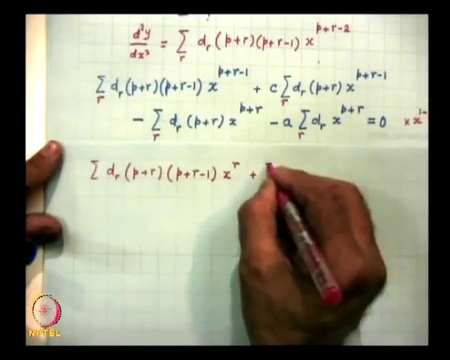 d²y/dx² = Σ_r d_r (p+r)(p+r-1) x^{p+r-2}
Σ_r d_r (p+r)(p+r-1) x^{p+r-1} + c Σ_r d_r (p+r) x^{p+r-1}
- Σ_r d_r (p+r) x^{p+r} - a Σ_r d_r x^{p+r} = 0 × x^{1-
Σ d_r (p+r)(p+r-1) x^r +
NPTEL